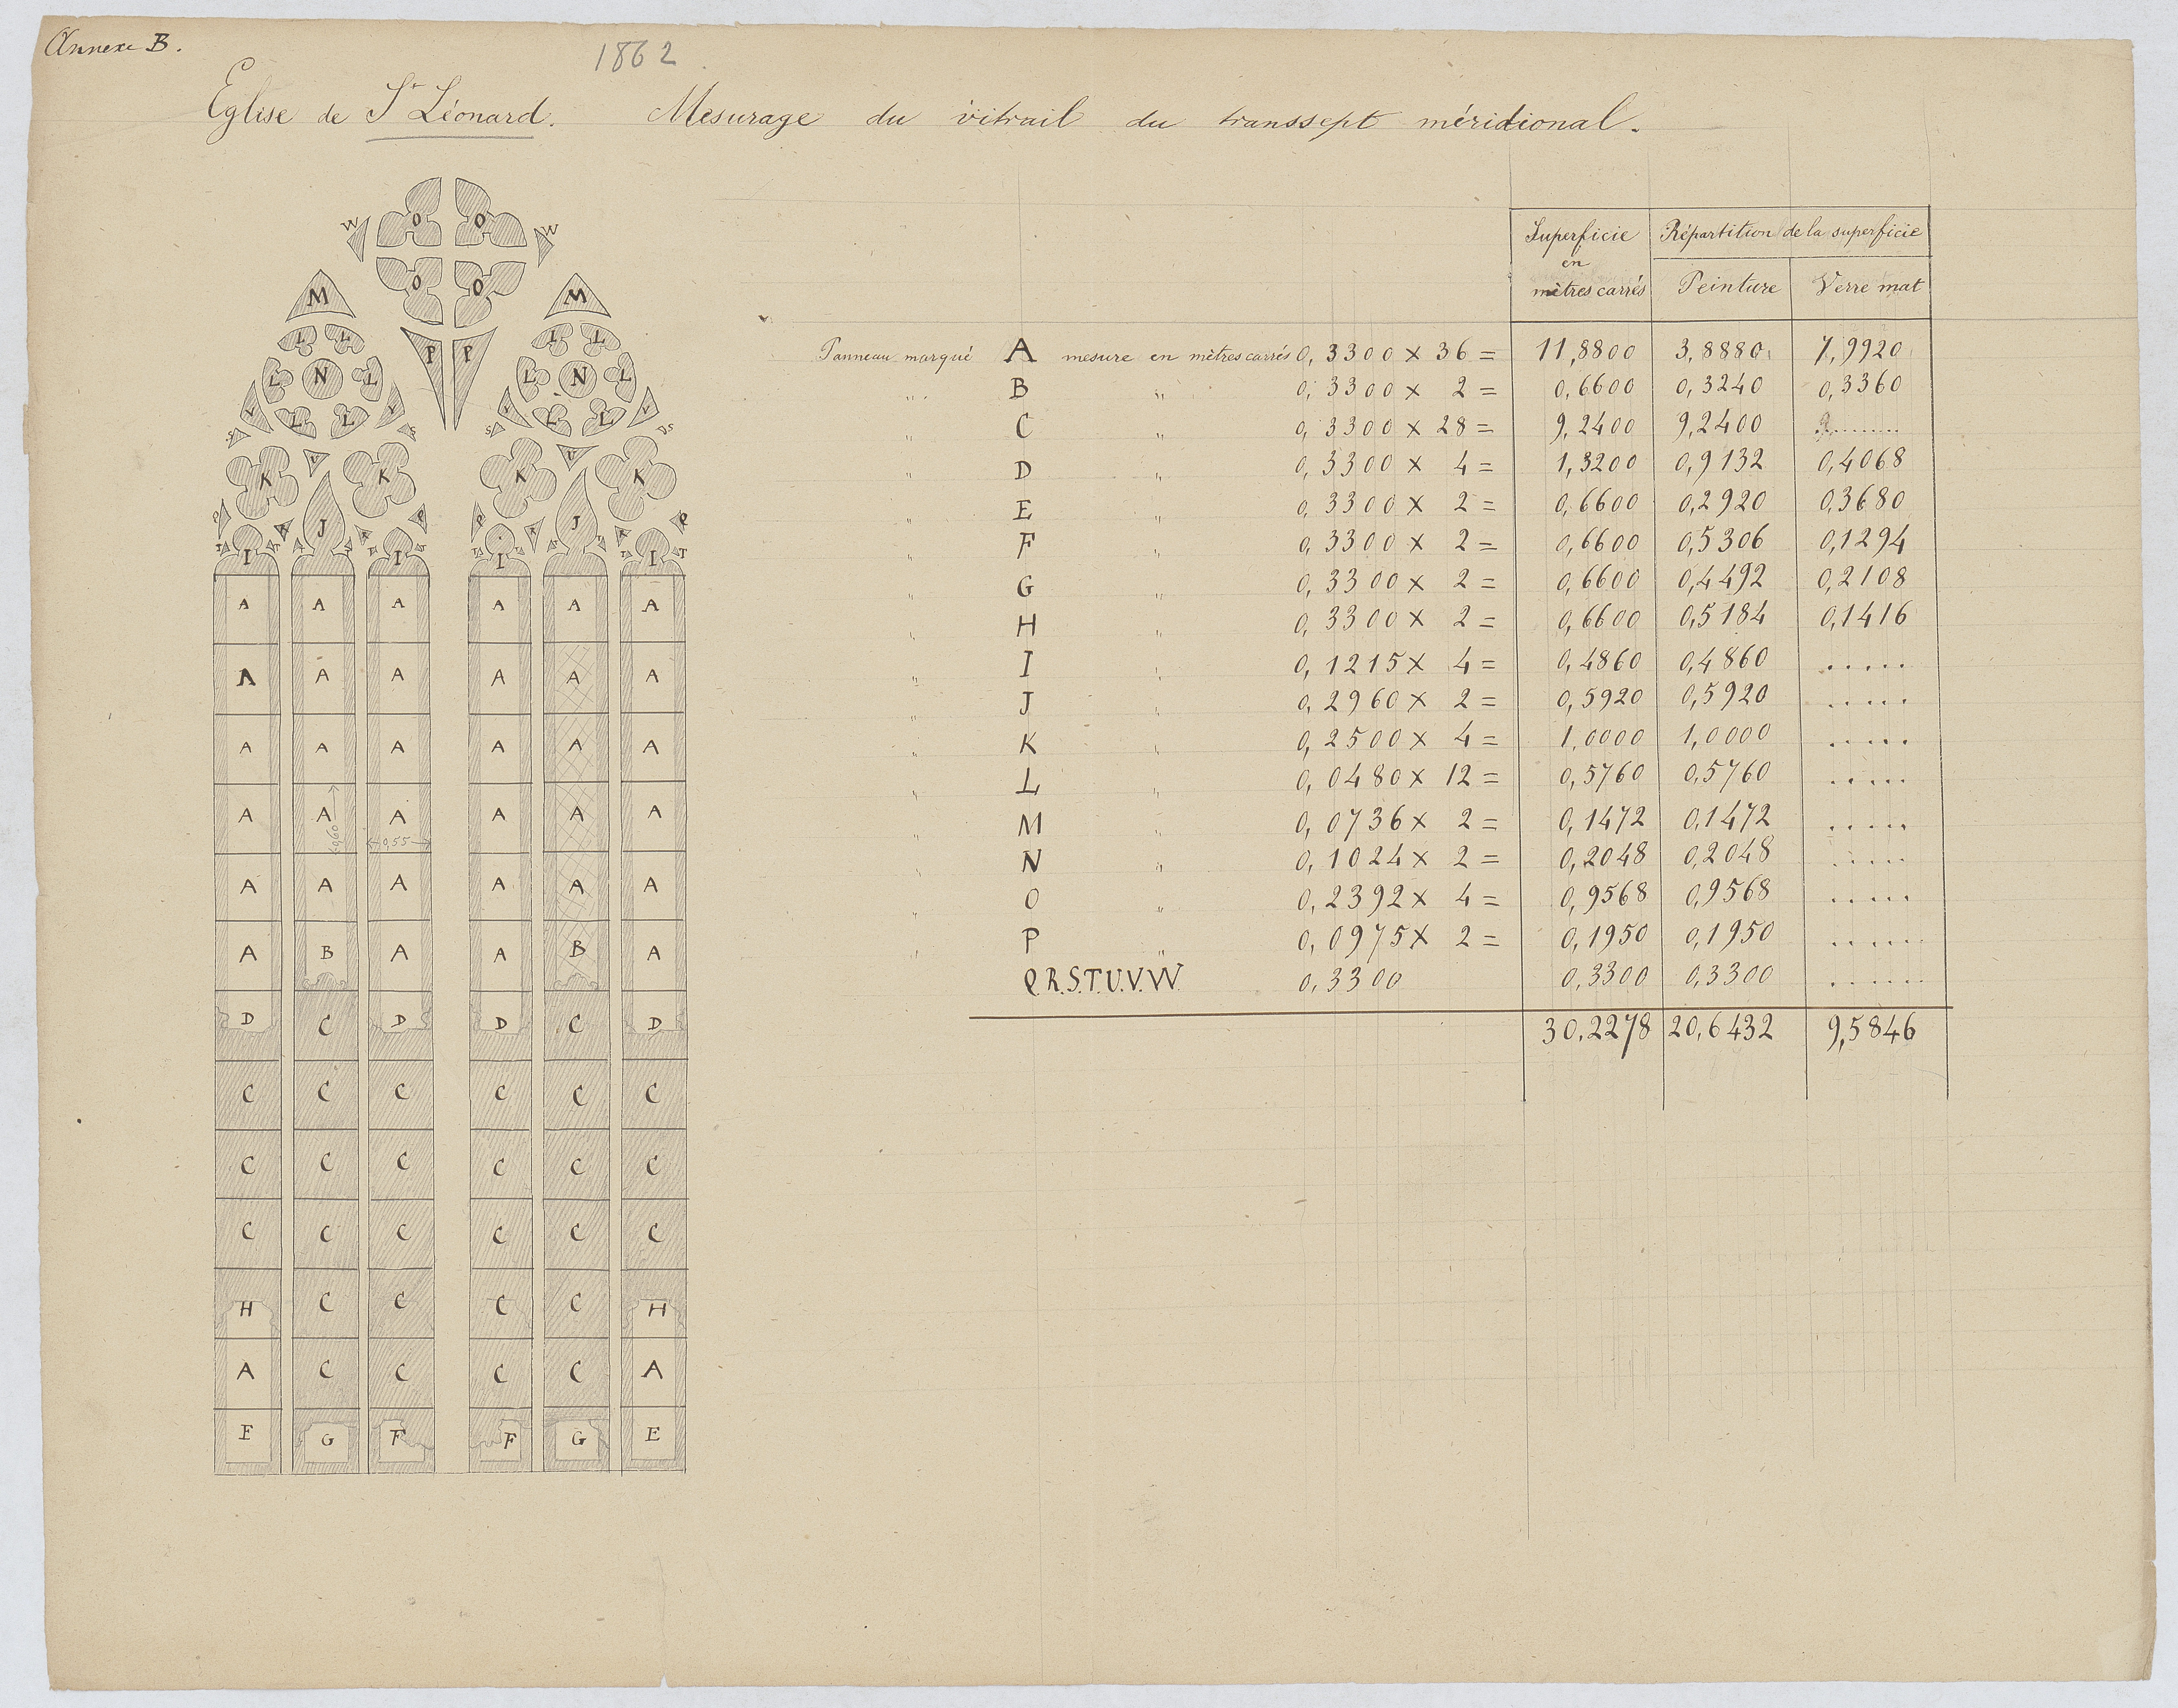 Annexe B.
1862
Eglise de St Léonard. Mesurage du vitrail du transsept méridional.
Superficie en mètres carrés
Répartition de la superficie
Peinture Verre mat
Panneau marqué A mesure en mètres carrés 0,3300 × 36 = 11,8800 3,8880 7,9920
" B " 0,3300 × 2 = 0,6600 0,3240 0,3360
" C " 0,3300 × 28 = 9,2400 9,2400 ........
" D " 0,3300 × 4 = 1,3200 0,9132 0,4068
" E " 0,3300 × 2 = 0,6600 0,2920 0,3680
" F " 0,3300 × 2 = 0,6600 0,5306 0,1294
" G " 0,3300 × 2 = 0,6600 0,4492 0,2108
" H " 0,3300 × 2 = 0,6600 0,5184 0,1416
" I " 0,1215 × 4 = 0,4860 0,4860 .....
" J " 0,2960 × 2 = 0,5920 0,5920 .....
" K " 0,2500 × 4 = 1,0000 1,0000 .....
" L " 0,0480 × 12 = 0,5760 0,5760 .....
" M " 0,0736 × 2 = 0,1472 0,1472 .....
" N " 0,1024 × 2 = 0,2048 0,2048 .....
" O " 0,2392 × 4 = 0,9568 0,9568 .....
" P " 0,0975 × 2 = 0,1950 0,1950 ......
Q.R.S.T.U.V.W. 0,3300 0,3300 0,3300 ......
30,2278 20,6432 9,5846
O O
W W
O O
M M
P P
L L L L
L N L L N L
V V V V
L L L L
S S S S
U U
K K K K
Q R R Q Q R R Q
J J
T T T T T T T T T T T T
I I I I
A A A A A A
A A A A A A
A A A A A A
A A A A A A
0,60 0,55
A A A A A A
A B A A B A
D C D D C D
C C C C C C
C C C C C C
C C C C C C
H C C C C H
A C C C C A
E G F F G E